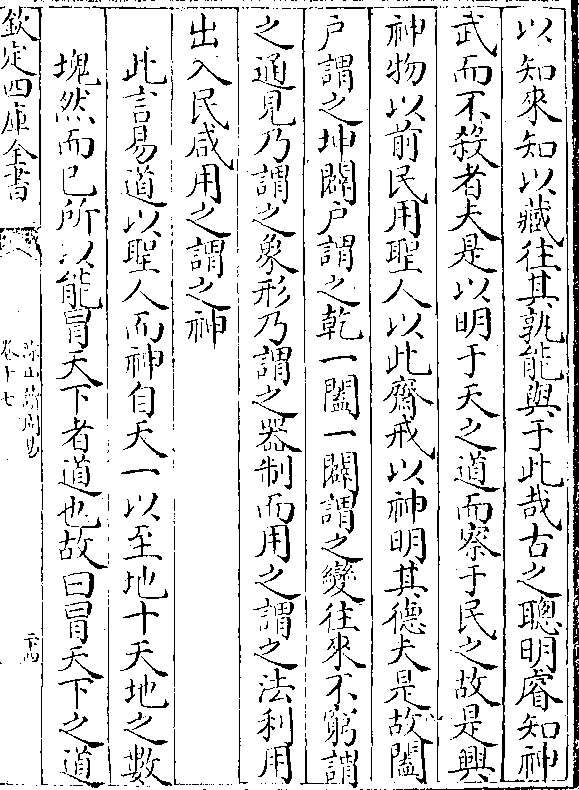 以知來知以藏往其孰能與于此哉古之聰明睿知神
武而不殺者夫是以明于天之道而察于民之故是興
神物以前民用聖人以此齋戒以神明其德夫是故闔
戶謂之坤闢戶謂之乾一闔一闢謂之變往來不窮謂
之通見乃謂之象形乃謂之器制而用之謂之法利用
出入民咸用之謂之神
此言易道以聖人而神自天一以至地十天地之數
塊然而已所以能冐天下者道也故曰冐天下之道
欽定四庫全書
卷十七